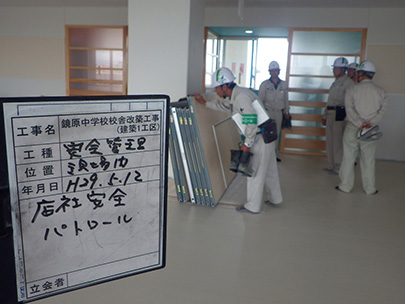 工事名 鏡原中学校校舎改築工事
(建築1工区)
工種 安全管理
位置 現場内
年月日 H29.5.12
店社安全
パトロール
立会者